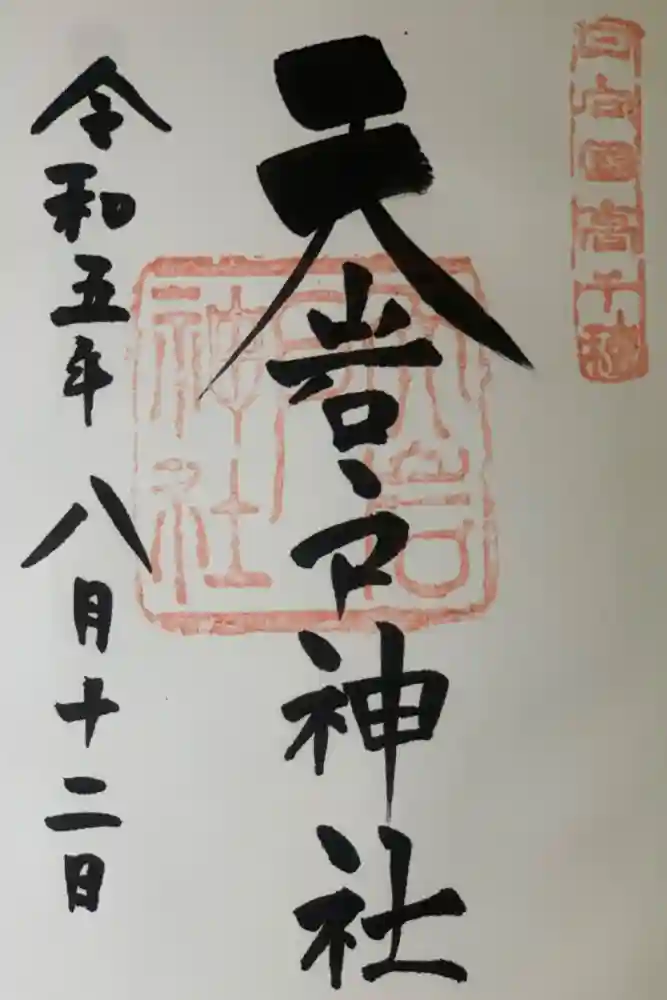 日向国高千穂
天岩戸神社
天岩戸神社
令和五年八月十二日